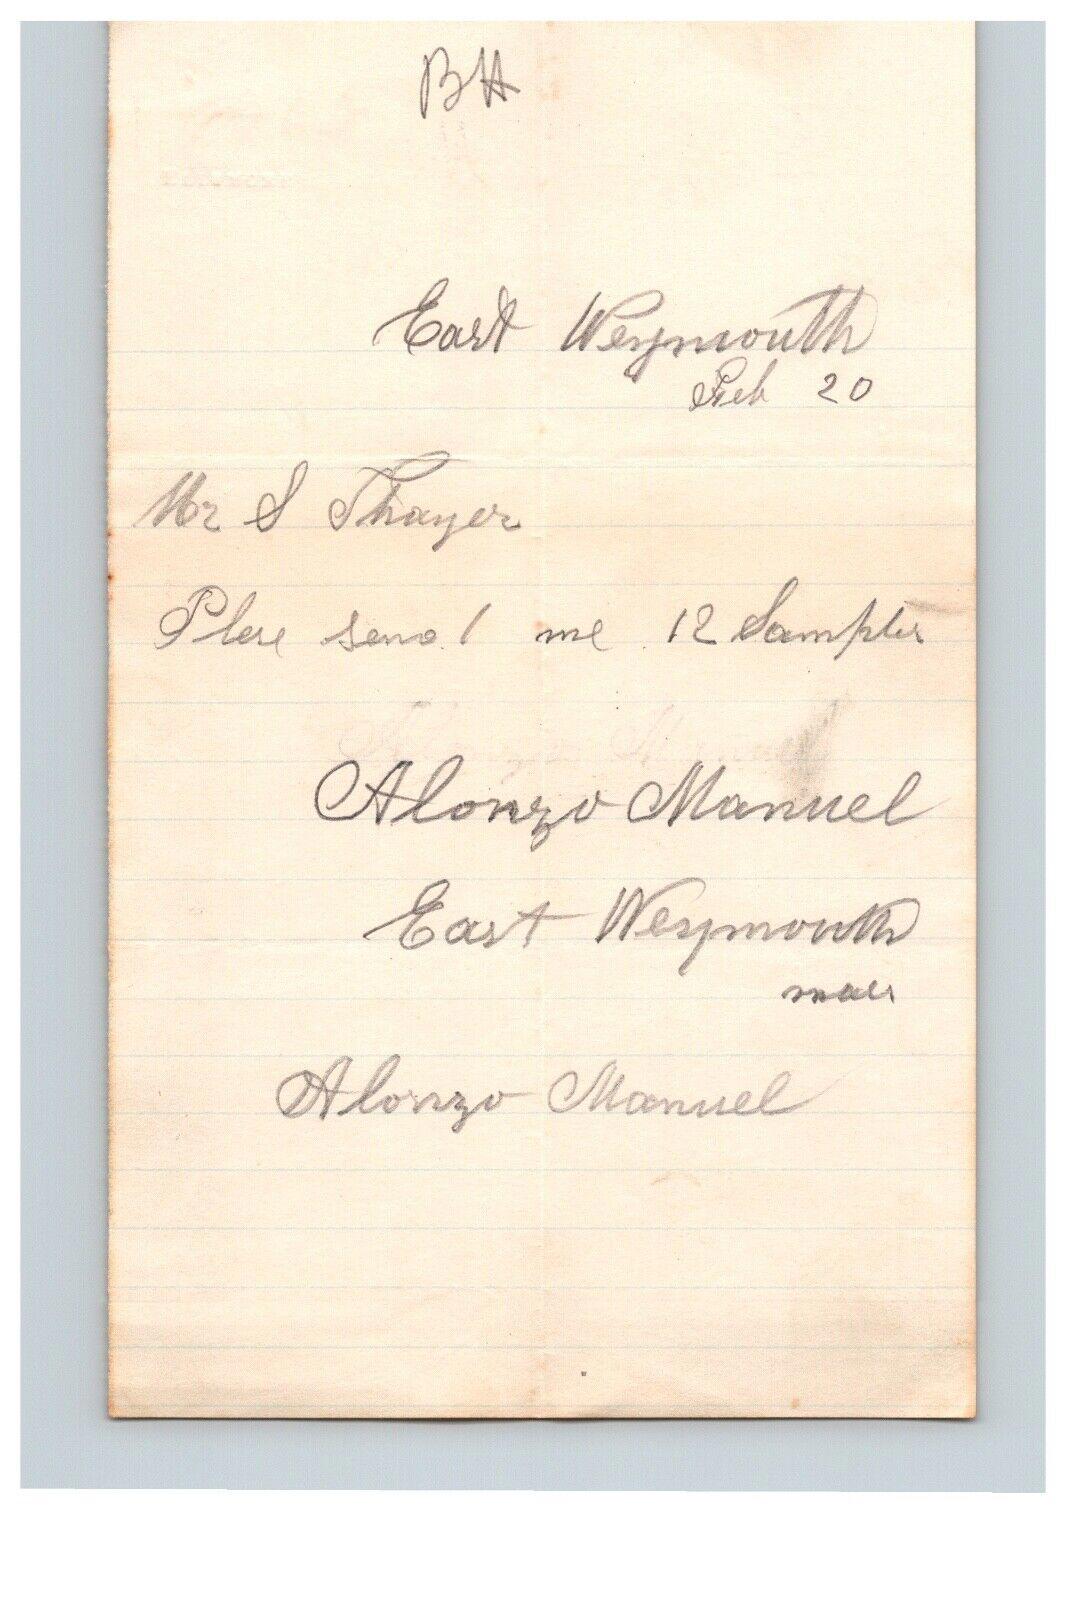 BH
East Weymouth
Feb 20
Mr S Thayer
Plese send me 12 Samples
Alonzo Manuel
East Weymouth
mass
Alonzo Manuel